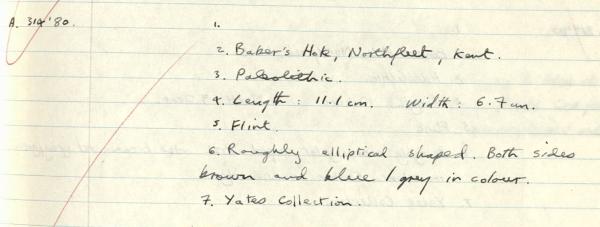 A. 314'80.
1.
2. Baker's Hole, Northfleet, Kent.
3. Paleolithic.
4. Length : 11.1 cm. Width : 6.7 cm.
5. Flint.
6. Roughly elliptical shaped. Both sides
brown and blue / grey in colour.
7. Yates Collection.